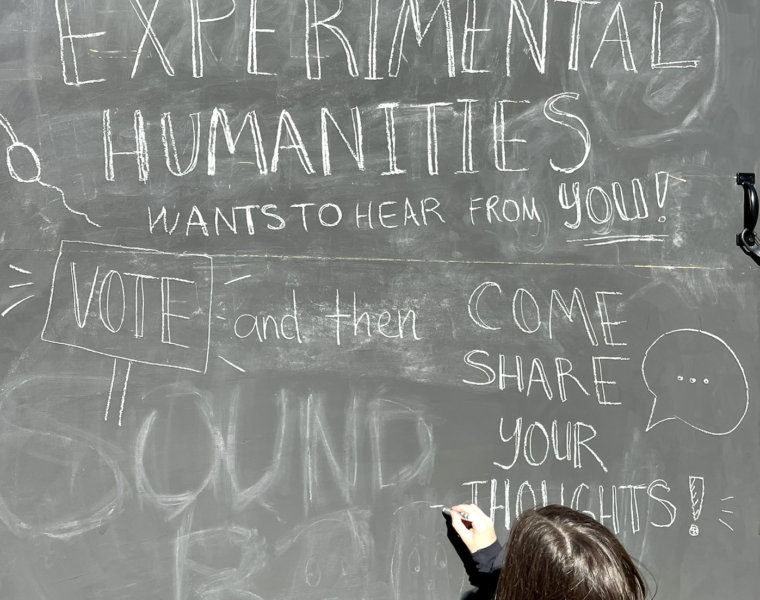 EXPERIMENTAL
HUMANITIES
WANTS TO HEAR FROM YOU!
VOTE and then COME
SHARE
YOUR
THOUGHTS!
SOUND